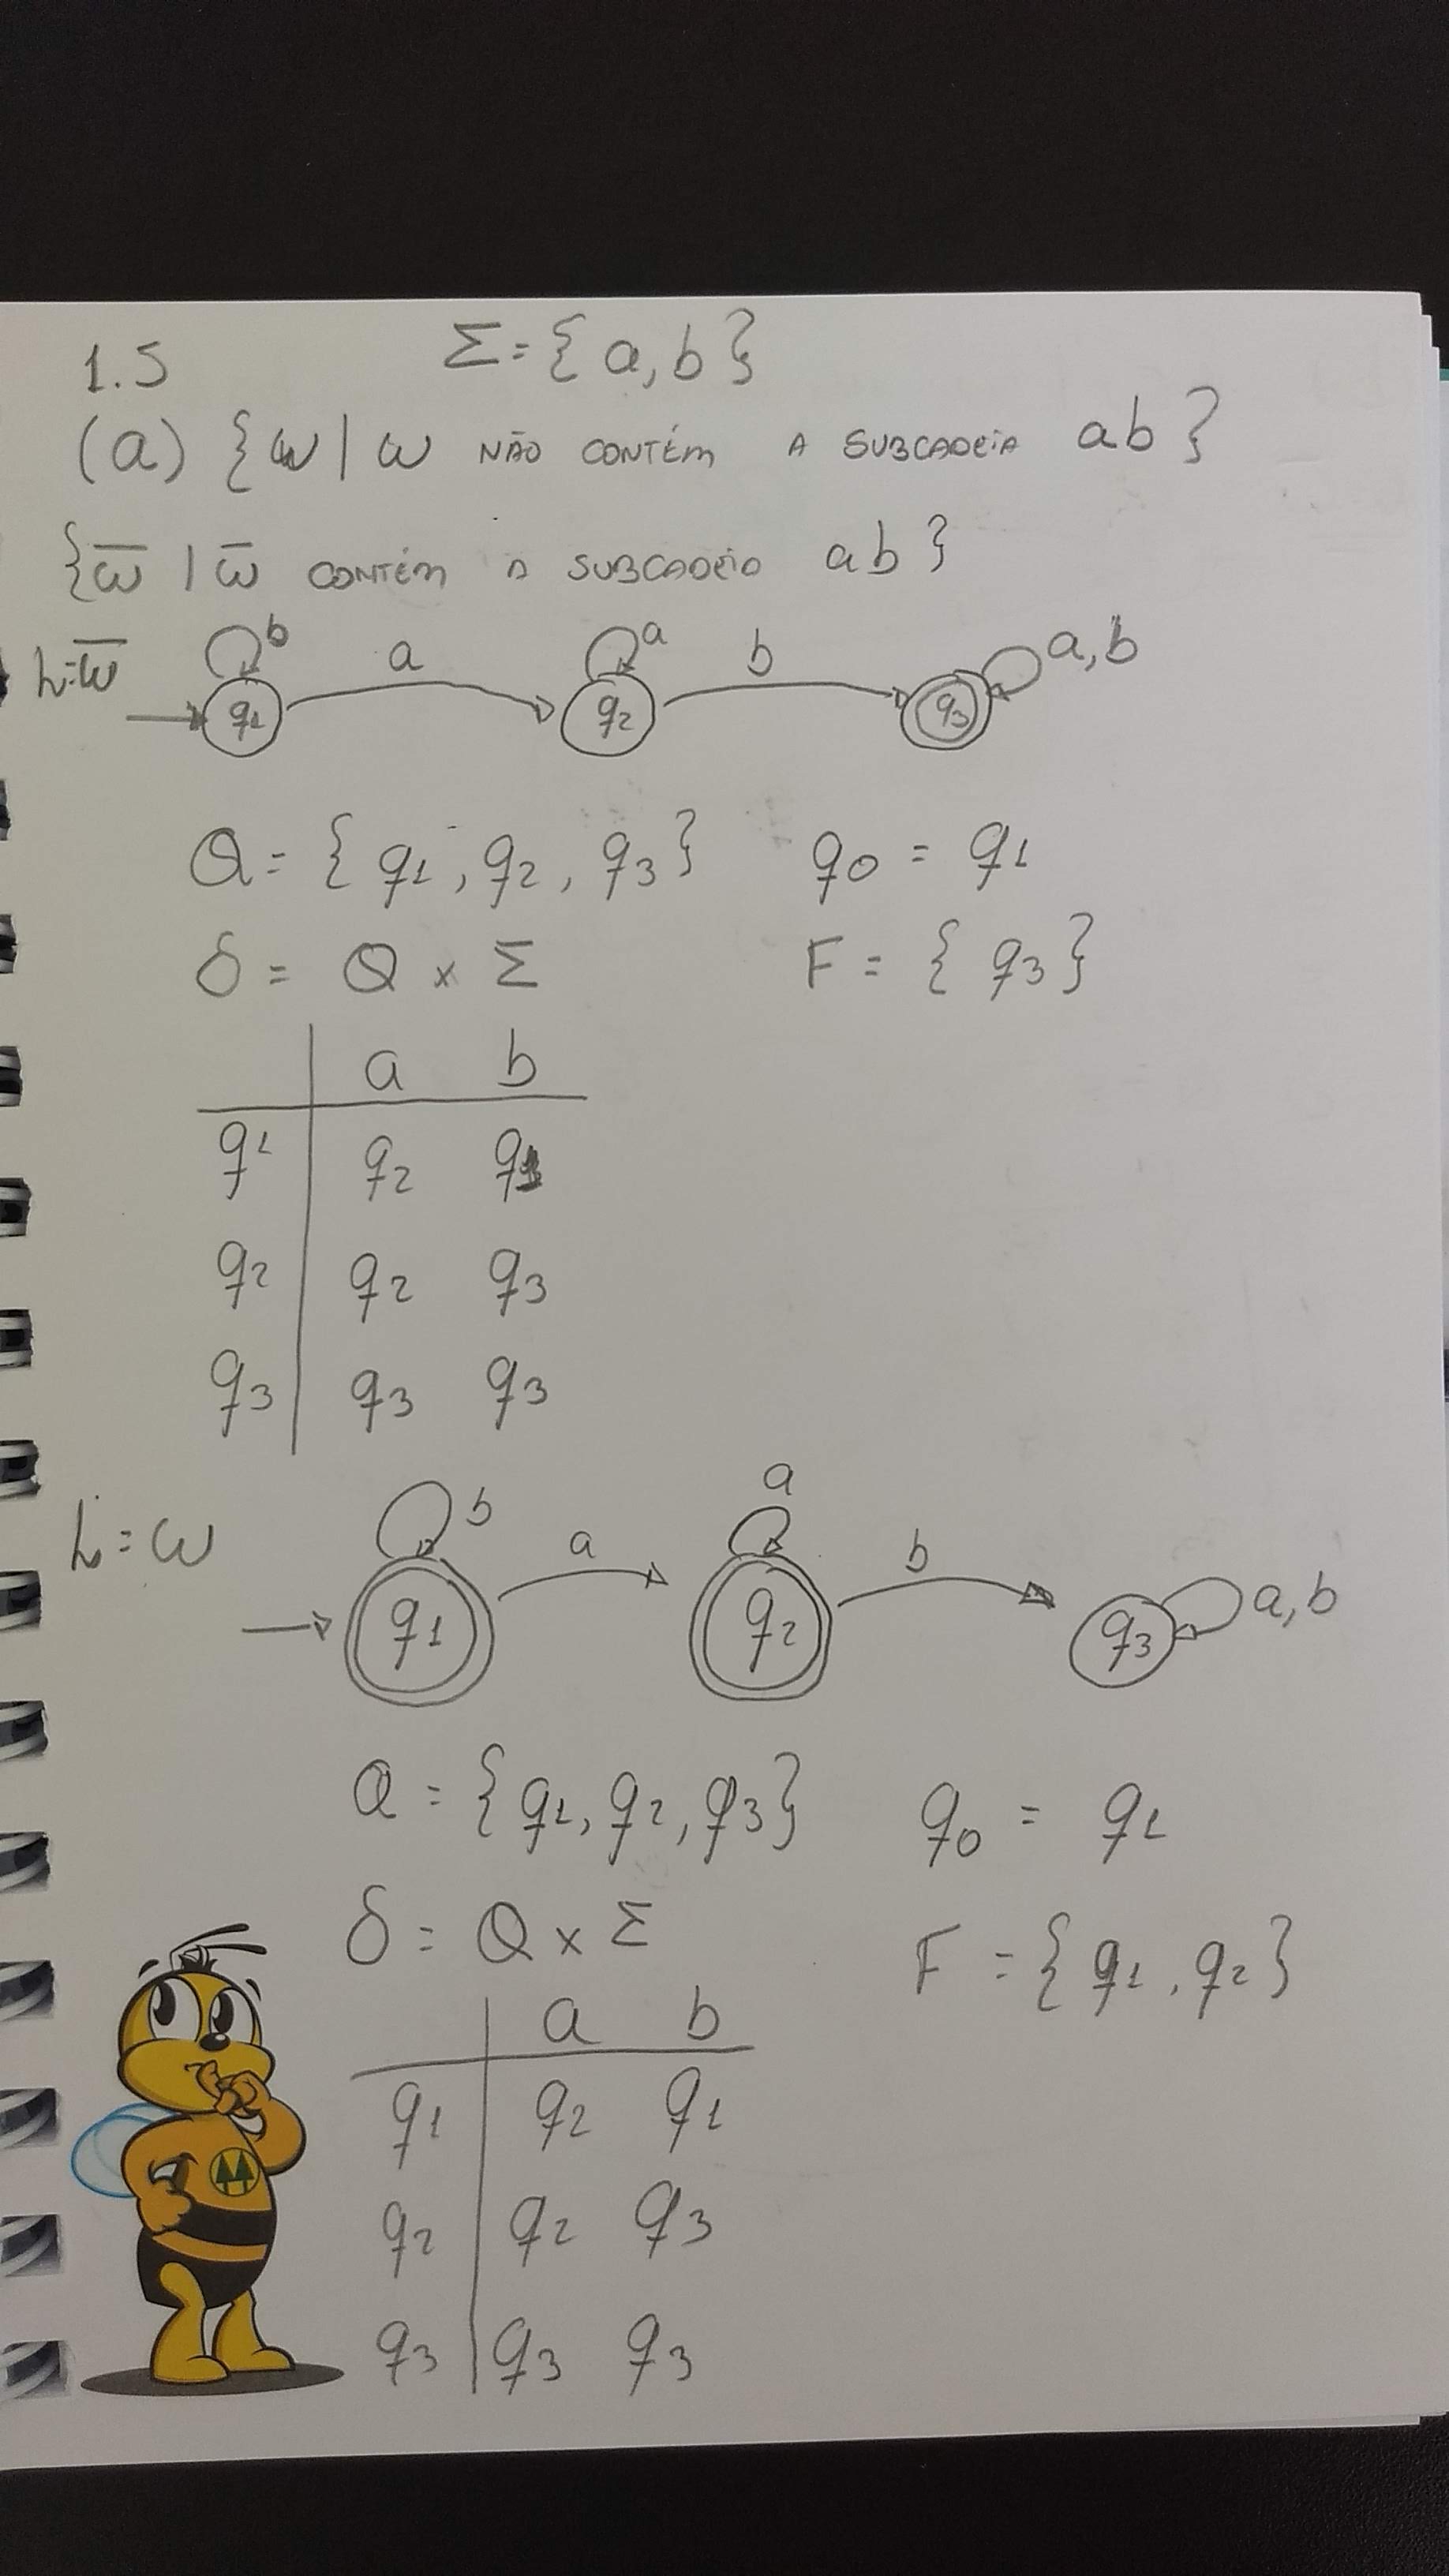 1.5 Σ = { a, b }
(a) { ω | ω NÃO CONTÉM A SUBCADEIA ab }
{ ω̅ | ω̅ CONTÉM A SUBCADEIA ab }
b a a b a, b
L = ω̅
q1 q2 q3
Q = { q1, q2, q3 } q0 = q1
δ = Q × Σ F = { q3 }
a b
q1 q2 q1
q2 q2 q3
q3 q3 q3
b a a b
L = ω
q1 q2 q3 a, b
Q = { q1, q2, q3 } q0 = q1
δ = Q × Σ F = { q1, q2 }
a b
q1 q2 q1
q2 q2 q3
q3 q3 q3